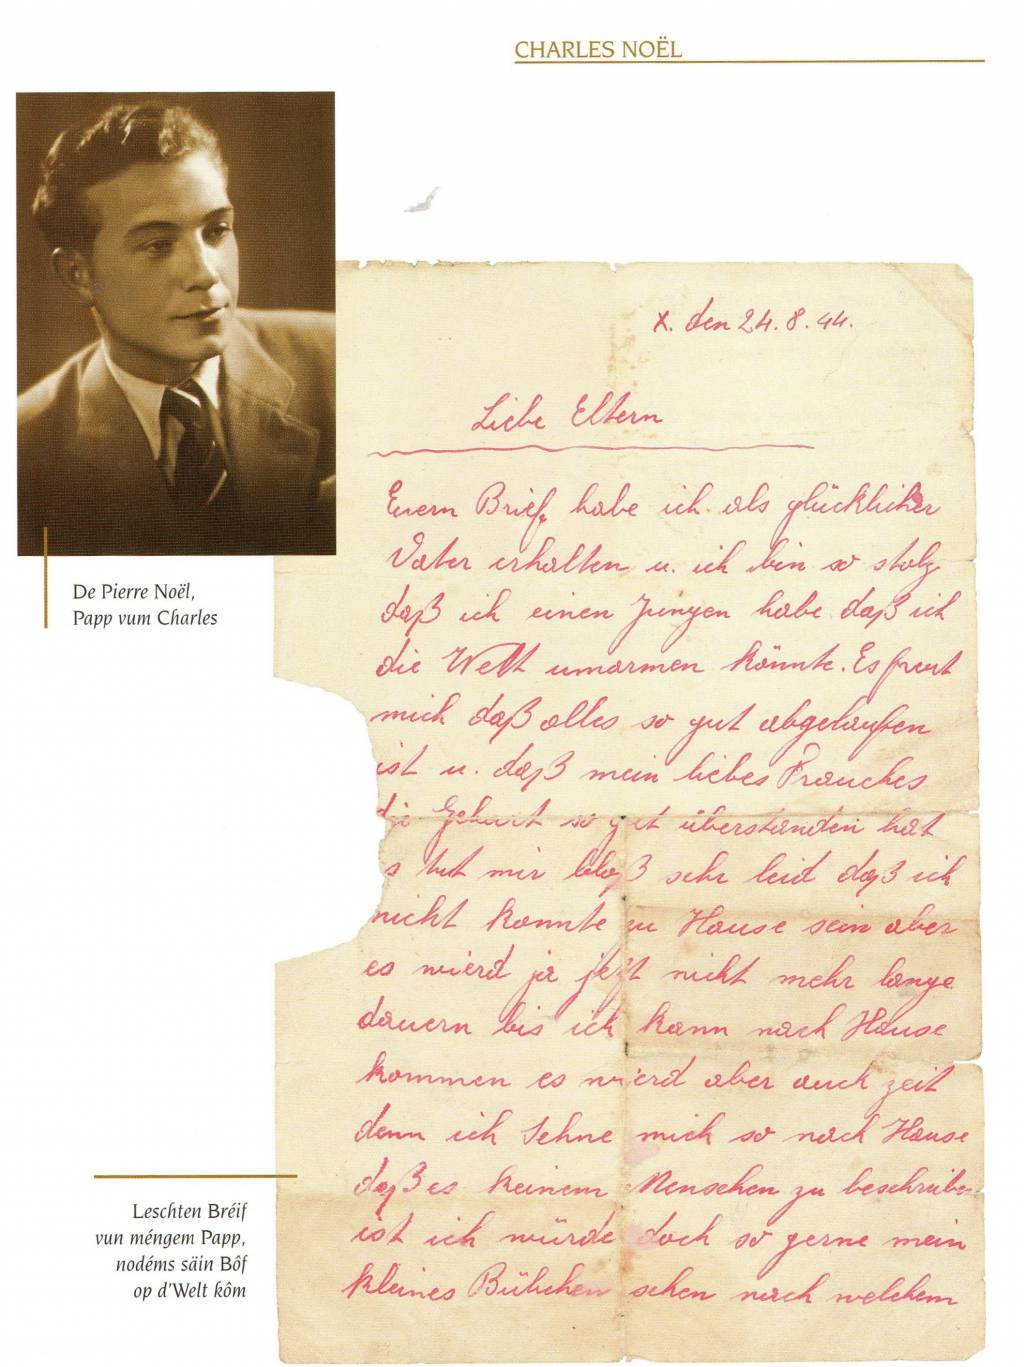 CHARLES NOËL
De Pierre Noël,
Papp vum Charles
X. den 24.8.44.
Liebe Eltern
Euern Brief, habe ich als glücklicher
Vater erhalten u. ich bin so stolz
daß ich einen Jungen habe daß ich
die Welt umarmen könnte. Es freut
mich daß alles so gut abgelaufen
ist u. daß mein liebes Frauches
die Geburt so gut überstanden hat
s tut mir bloß sehr leid daß ich
nicht konnte zu Hause sein aber
es wierd ja jetzt nicht mehr lange
dauern bis ich kann nach Hause
kommen es wierd aber auch zeit
denn ich Sehne mich so nach Hause
daß es keinem Menschen zu beschreiben
ist ich würde doch so gerne mein
kleines Bübchen sehen nach welchem
Leschten Bréif
vun méngem Papp,
nodéms säin Bôf
op d'Welt kôm